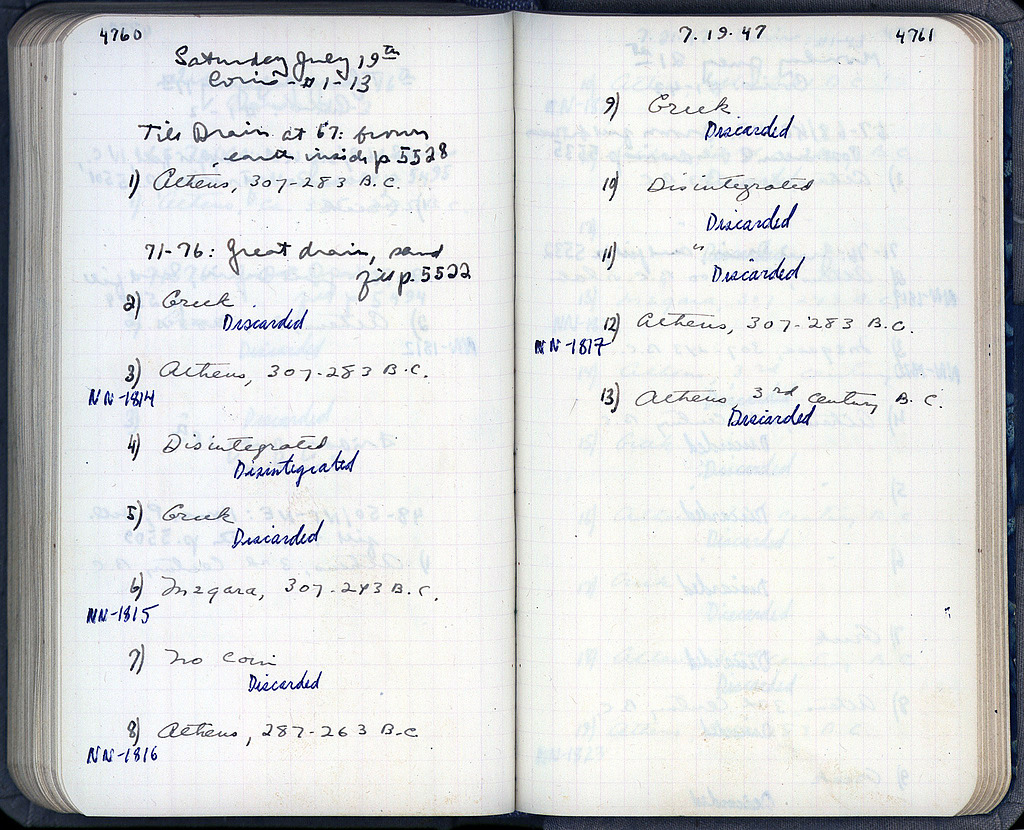 4760
Saturday July 19th
Coins - #1-13
Tile Drain at 67: brown
earth inside p 5528
1) Athens, 307-283 B.C.
71-76: Great drain, sand
fill p. 5522
2) Greek.
Discarded
3) Athens, 307-283 B.C.
NN-1814
4) Disintegrated
Disintegrated
5) Greek
Discarded
6) Megara, 307-243 B.C.
NN-1815
7) No coin
Discarded
8) Athens, 287-263 B.C
NN-1816
7.19.47
4761
9) Greek
Discarded
10) Disintegrated
Discarded
11) "
Discarded
12) Athens, 307-283 B.C.
NN-1817
13) Athens, 3rd Century B.C.
Discarded